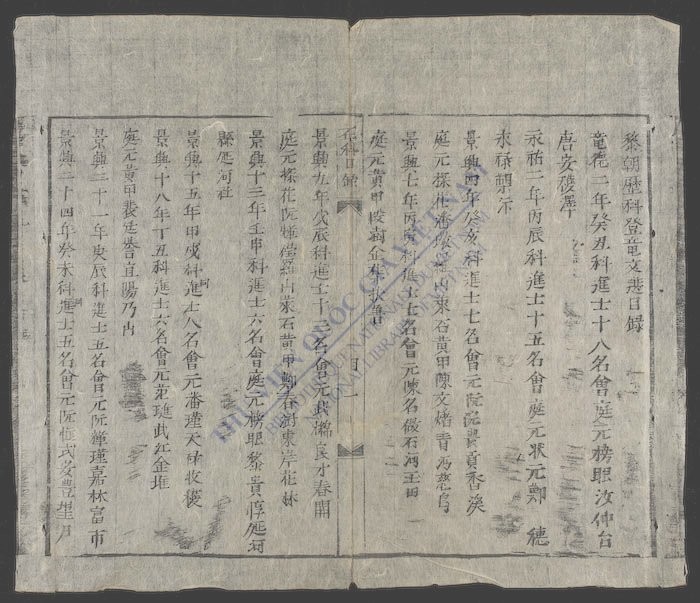 黎朝歷科登龍文選目錄
龍德二年癸丑科進士十八名會庭元榜眼汝仲台
唐安穫澤
永祐二年丙辰科進士十五名會庭元狀元鄭 德
永祿
景興四年癸亥科進士七名會元阮 貢香溪
庭元探花 內東谷黃甲陳文 青馮慈烏
景興七年丙寅科進士 名會元陳名 石河土田
庭元黃甲
歷科目錄
目一
景興九年戊辰科進士十三名會元武 良才春開
庭元探花阮 羅山萊石黃甲鄭春澍東岸花林
景興十三年壬申科進士六名會庭元榜眼黎貴惇延河
縣延河社
景興十五年甲戌科進士八名會元潘瑾天祿收穫
景興十八年丁丑科進士六名會元 璡武江金堆
庭元黃甲 廷譽宜陽乃內
景興二十一年庚辰科進士五名會元阮輝瑾嘉林富市
景興二十四年癸未科進士五名會元阮惟式安豐里
THƯ VIỆN QUỐC GIA VIỆT NAM
BIBLIOTHÈQUE NATIONALE DU VIETNAM
NATIONAL LIBRARY OF VIETNAM